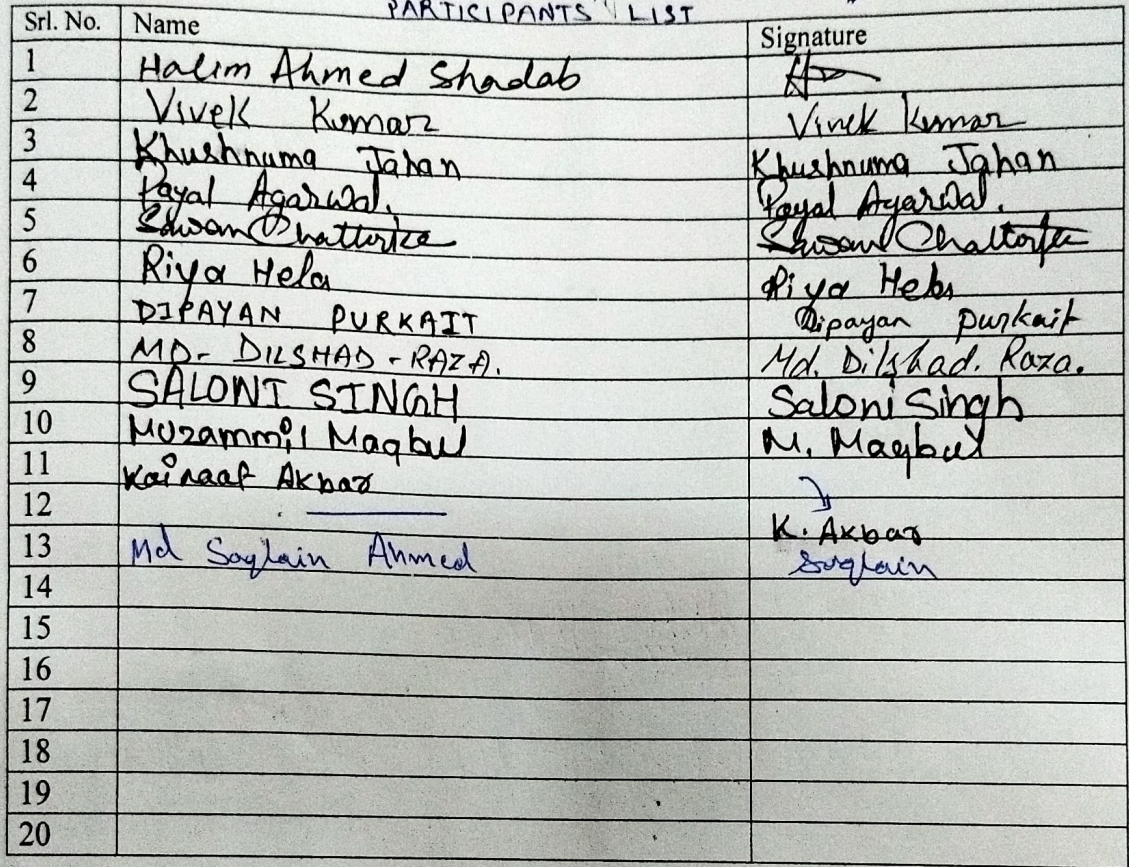 PARTICIPANTS LIST
Srl. No. Name Signature
1 Halim Ahmed Shadab
2 Vivek Kumar Vivek Kumar
3 Khushnuma Jahan Khushnuma Jahan
4 Payal Agarwal. Payal Agarwal.
5
6 Riya Hela Riya Hela
7 DIPAYAN PURKAIT Dipayan purkait
8 MD- DILSHAD - RAZA. Md. Dilshad. Raza.
9 SALONI SINGH Saloni Singh
10 Muzammil Maqbul M. Maqbul
11 Kainaat Akbar
12 K. Akbar
13 Md Saqlain Ahmed Saqlain
14
15
16
17
18
19
20